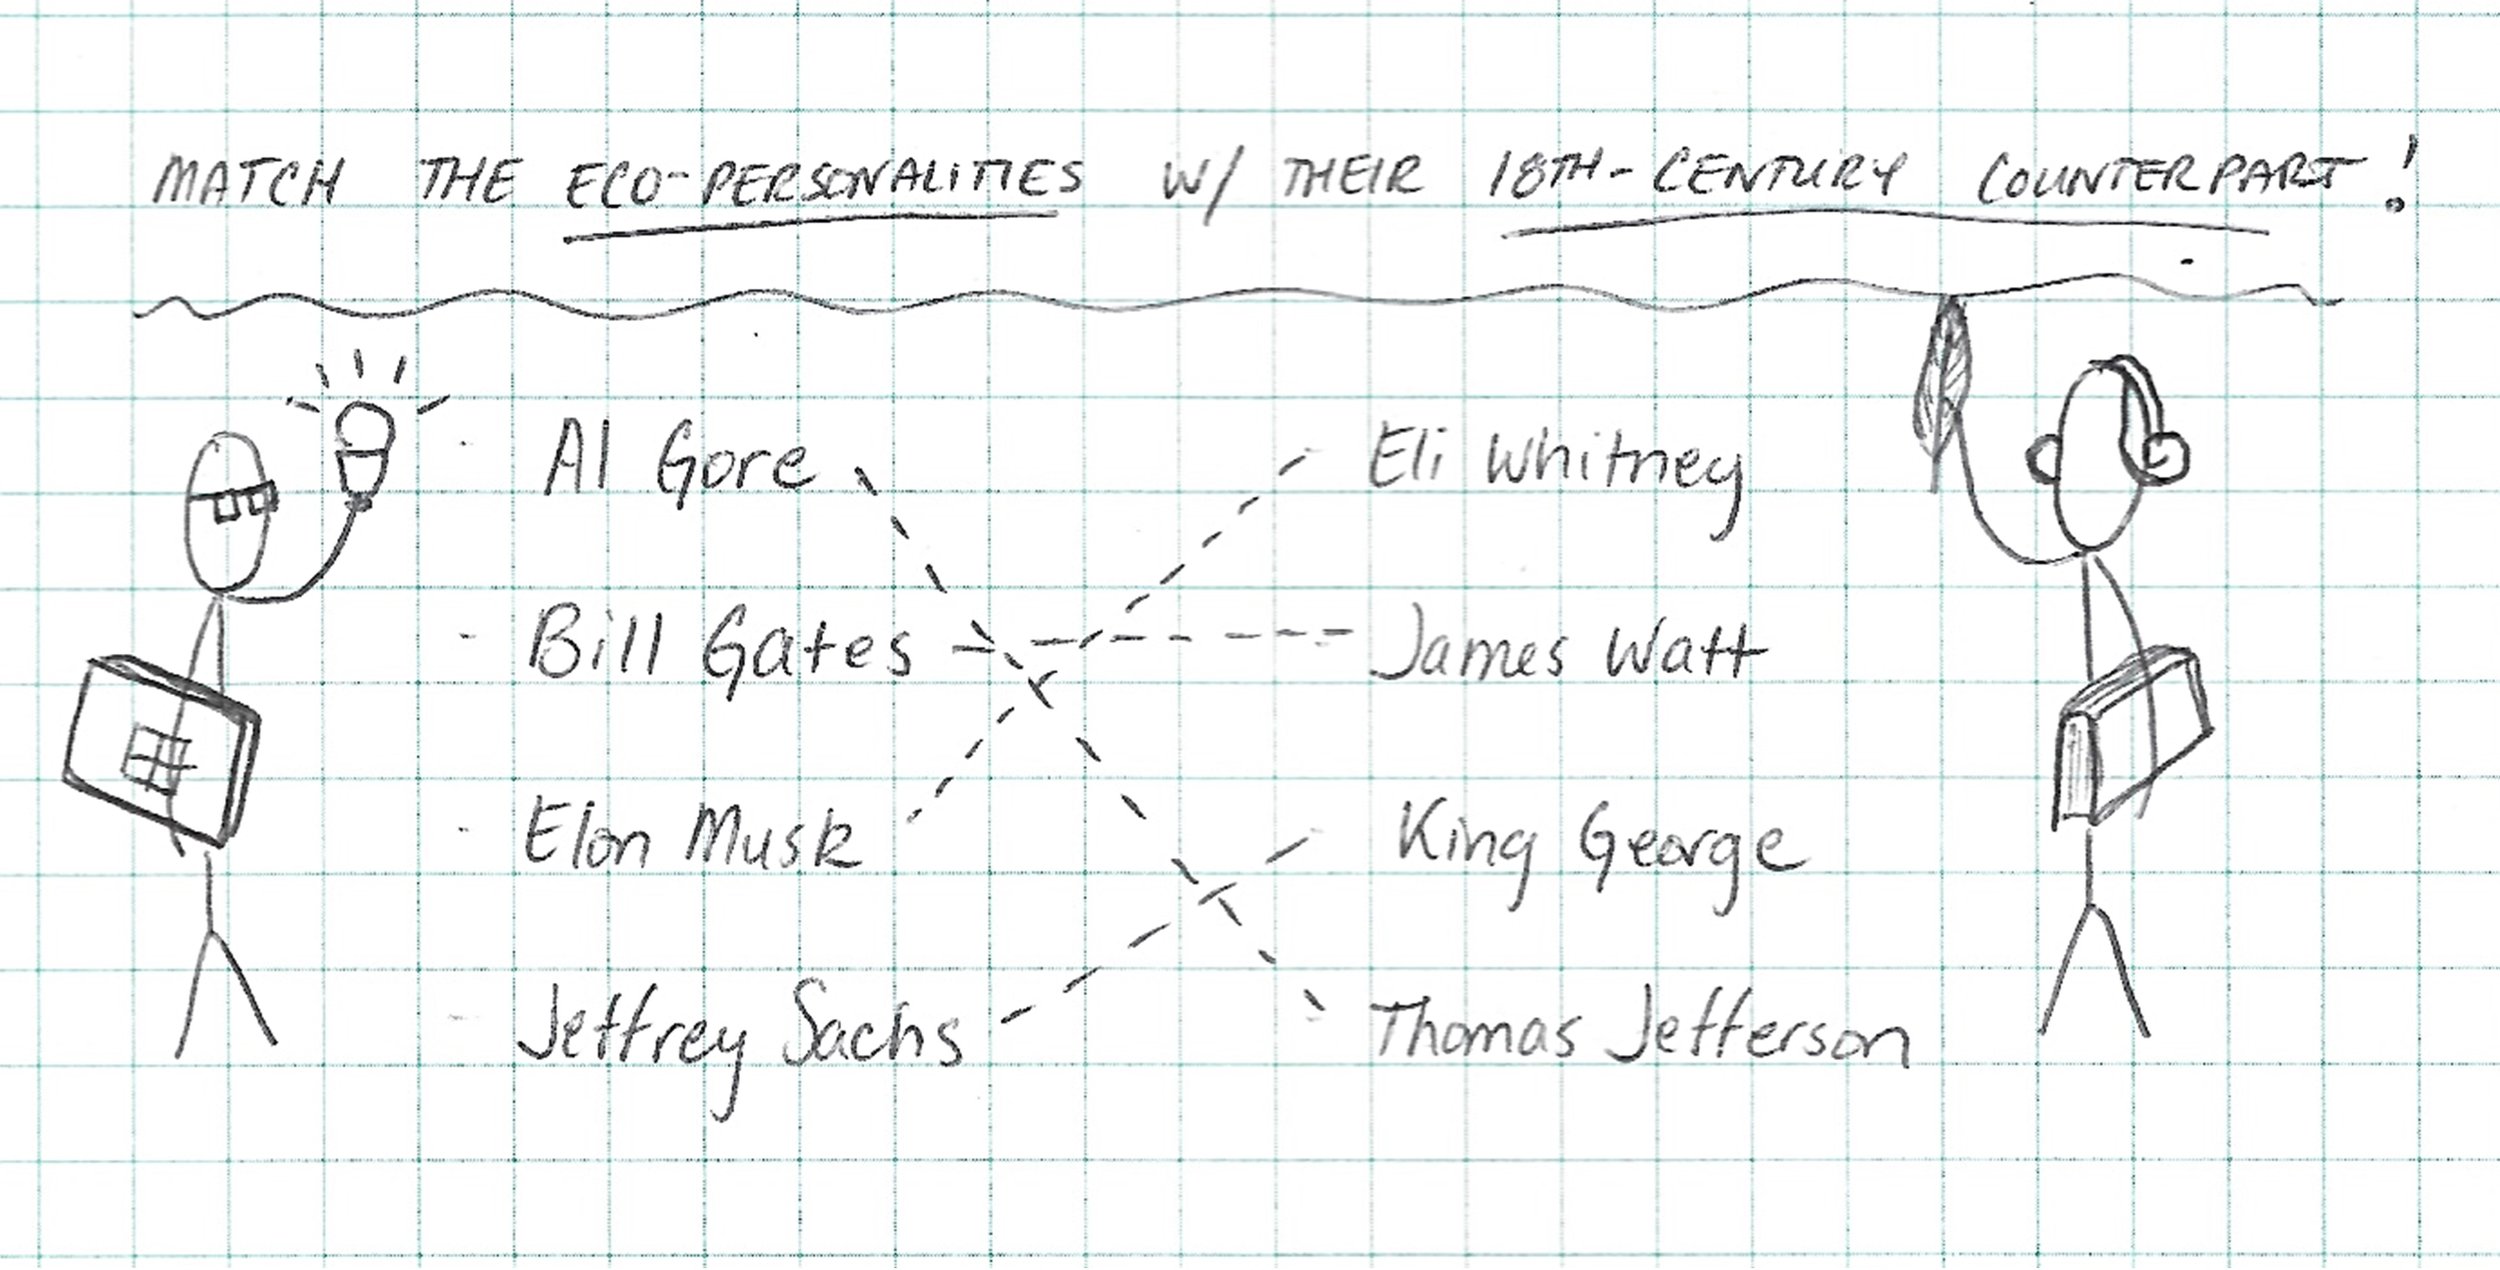 MATCH THE ECO-PERSONALITIES W/ THEIR 18TH-CENTURY COUNTERPART!
Al Gore
Eli Whitney
Bill Gates
James Watt
Elon Musk
King George
Jeffrey Sachs
Thomas Jefferson